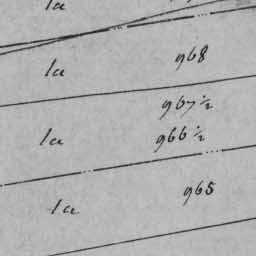 1a
1a 968
967½
1a 966½
1a 965